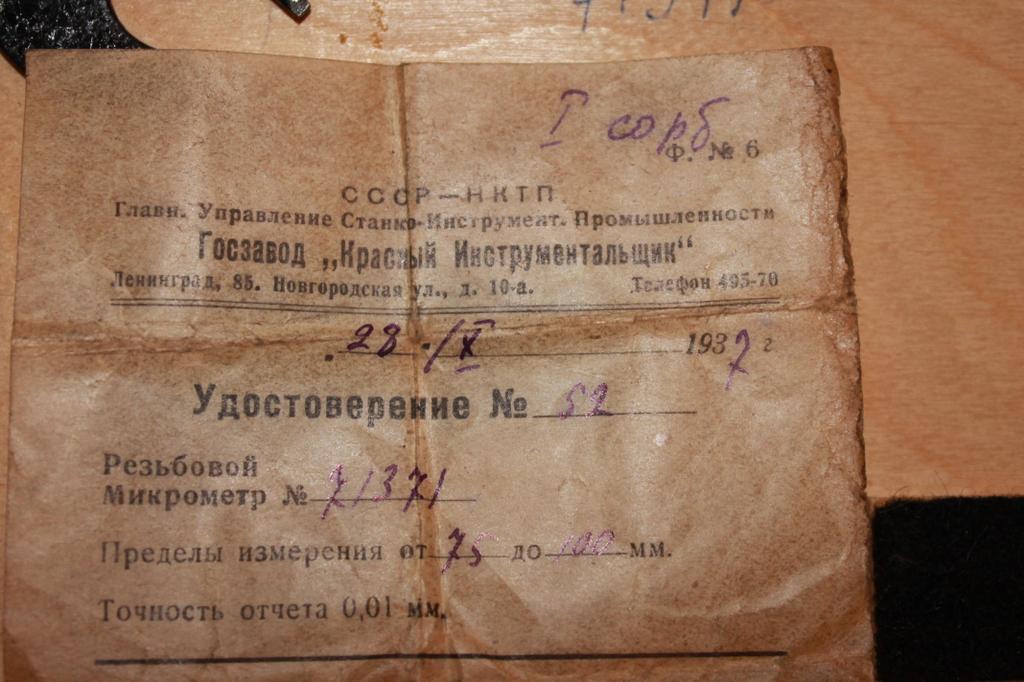 I сорб
Ф. № 6
СССР—НКТП
Главн. Управление Станко-Инструмент. Промышленности
Госзавод „Красный Инструментальщик“
Ленинград, 85. Новгородская ул., д. 10-а. Телефон 495-70
28 /X 1937 г
Удостоверение № 52
Резьбовой
Микрометр № 71371
Пределы измерения от 75 до 100 мм.
Точность отчета 0,01 мм.